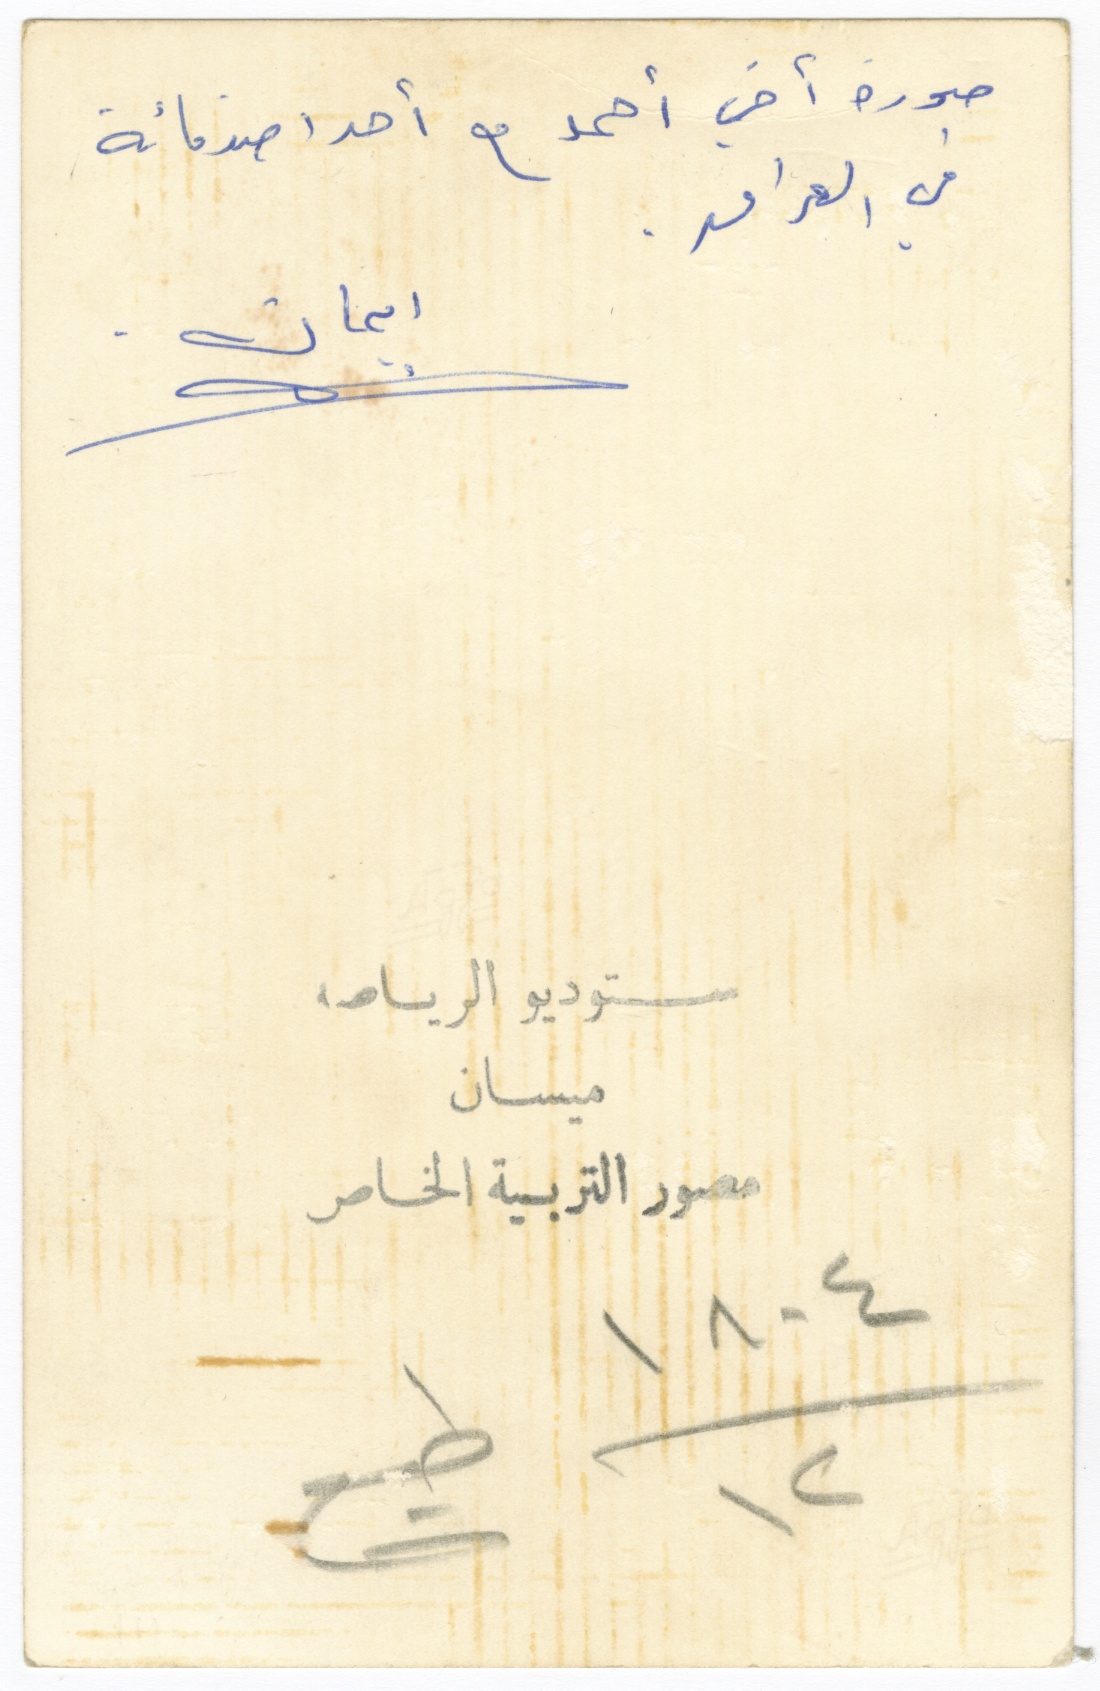 صورة أخي أحمد مع أحد اصدقائة
في العراق .
ايمان .
ستوديو الرياض
ميسان
مصور التربية الخاص
١٨٠٤
١٢